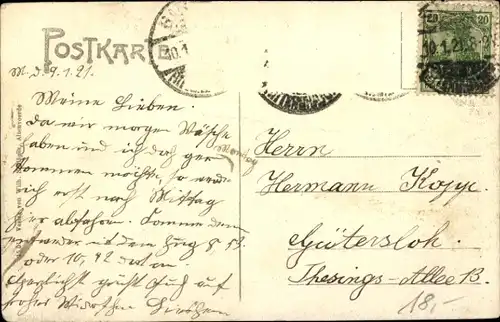 POSTKARTE
M. D. 9.1.21.
Meine Lieben.
Da wir morgen Wäsche
haben und ich doch gern
Montag
kommen möchte, so werde
ich erst nach Mittag
hier abfahren. Komme dann
entweder mit dem Zug 8 53
oder 10,42 dort an.
Herzlichst grüßt Euch auf
frohes Wiedersehen
Herrn
Hermann Kopp.
Gütersloh.
Thesings-Allee 13.
18,-
20 20
10.1.21.8